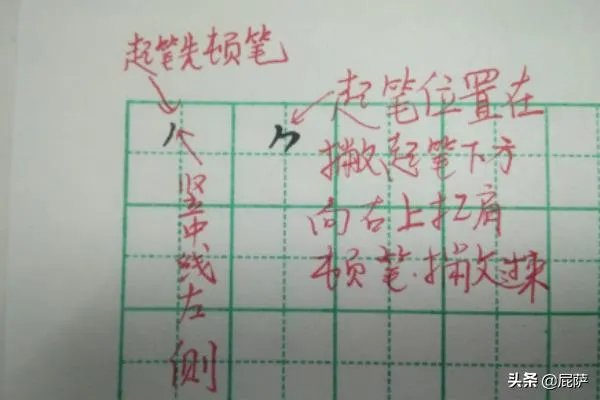 起笔先顿笔
竖中线左侧
起笔位置在
撇起笔下方
向右上扛肩
顿笔.撇过来
头条@屁萨